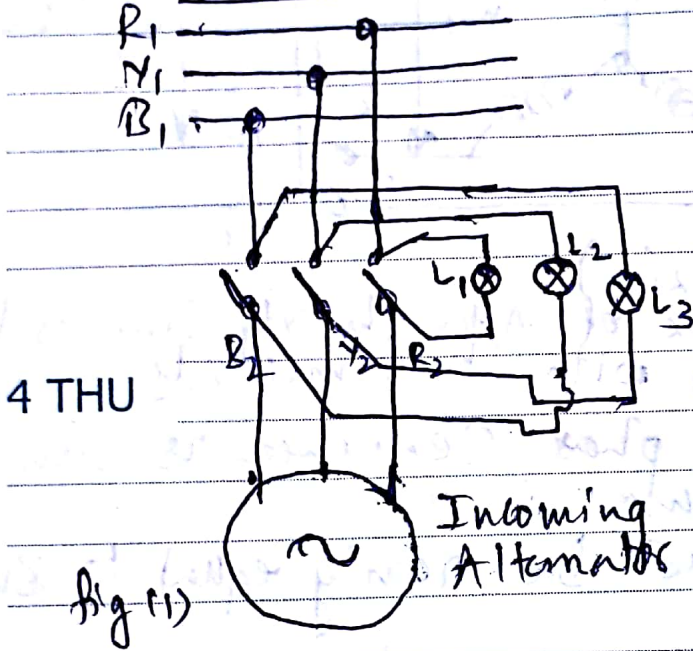 R1
Y1
B1
L1
L2
L3
B2
Y2
R2
4 THU
Incoming
Alternator
fig (1)